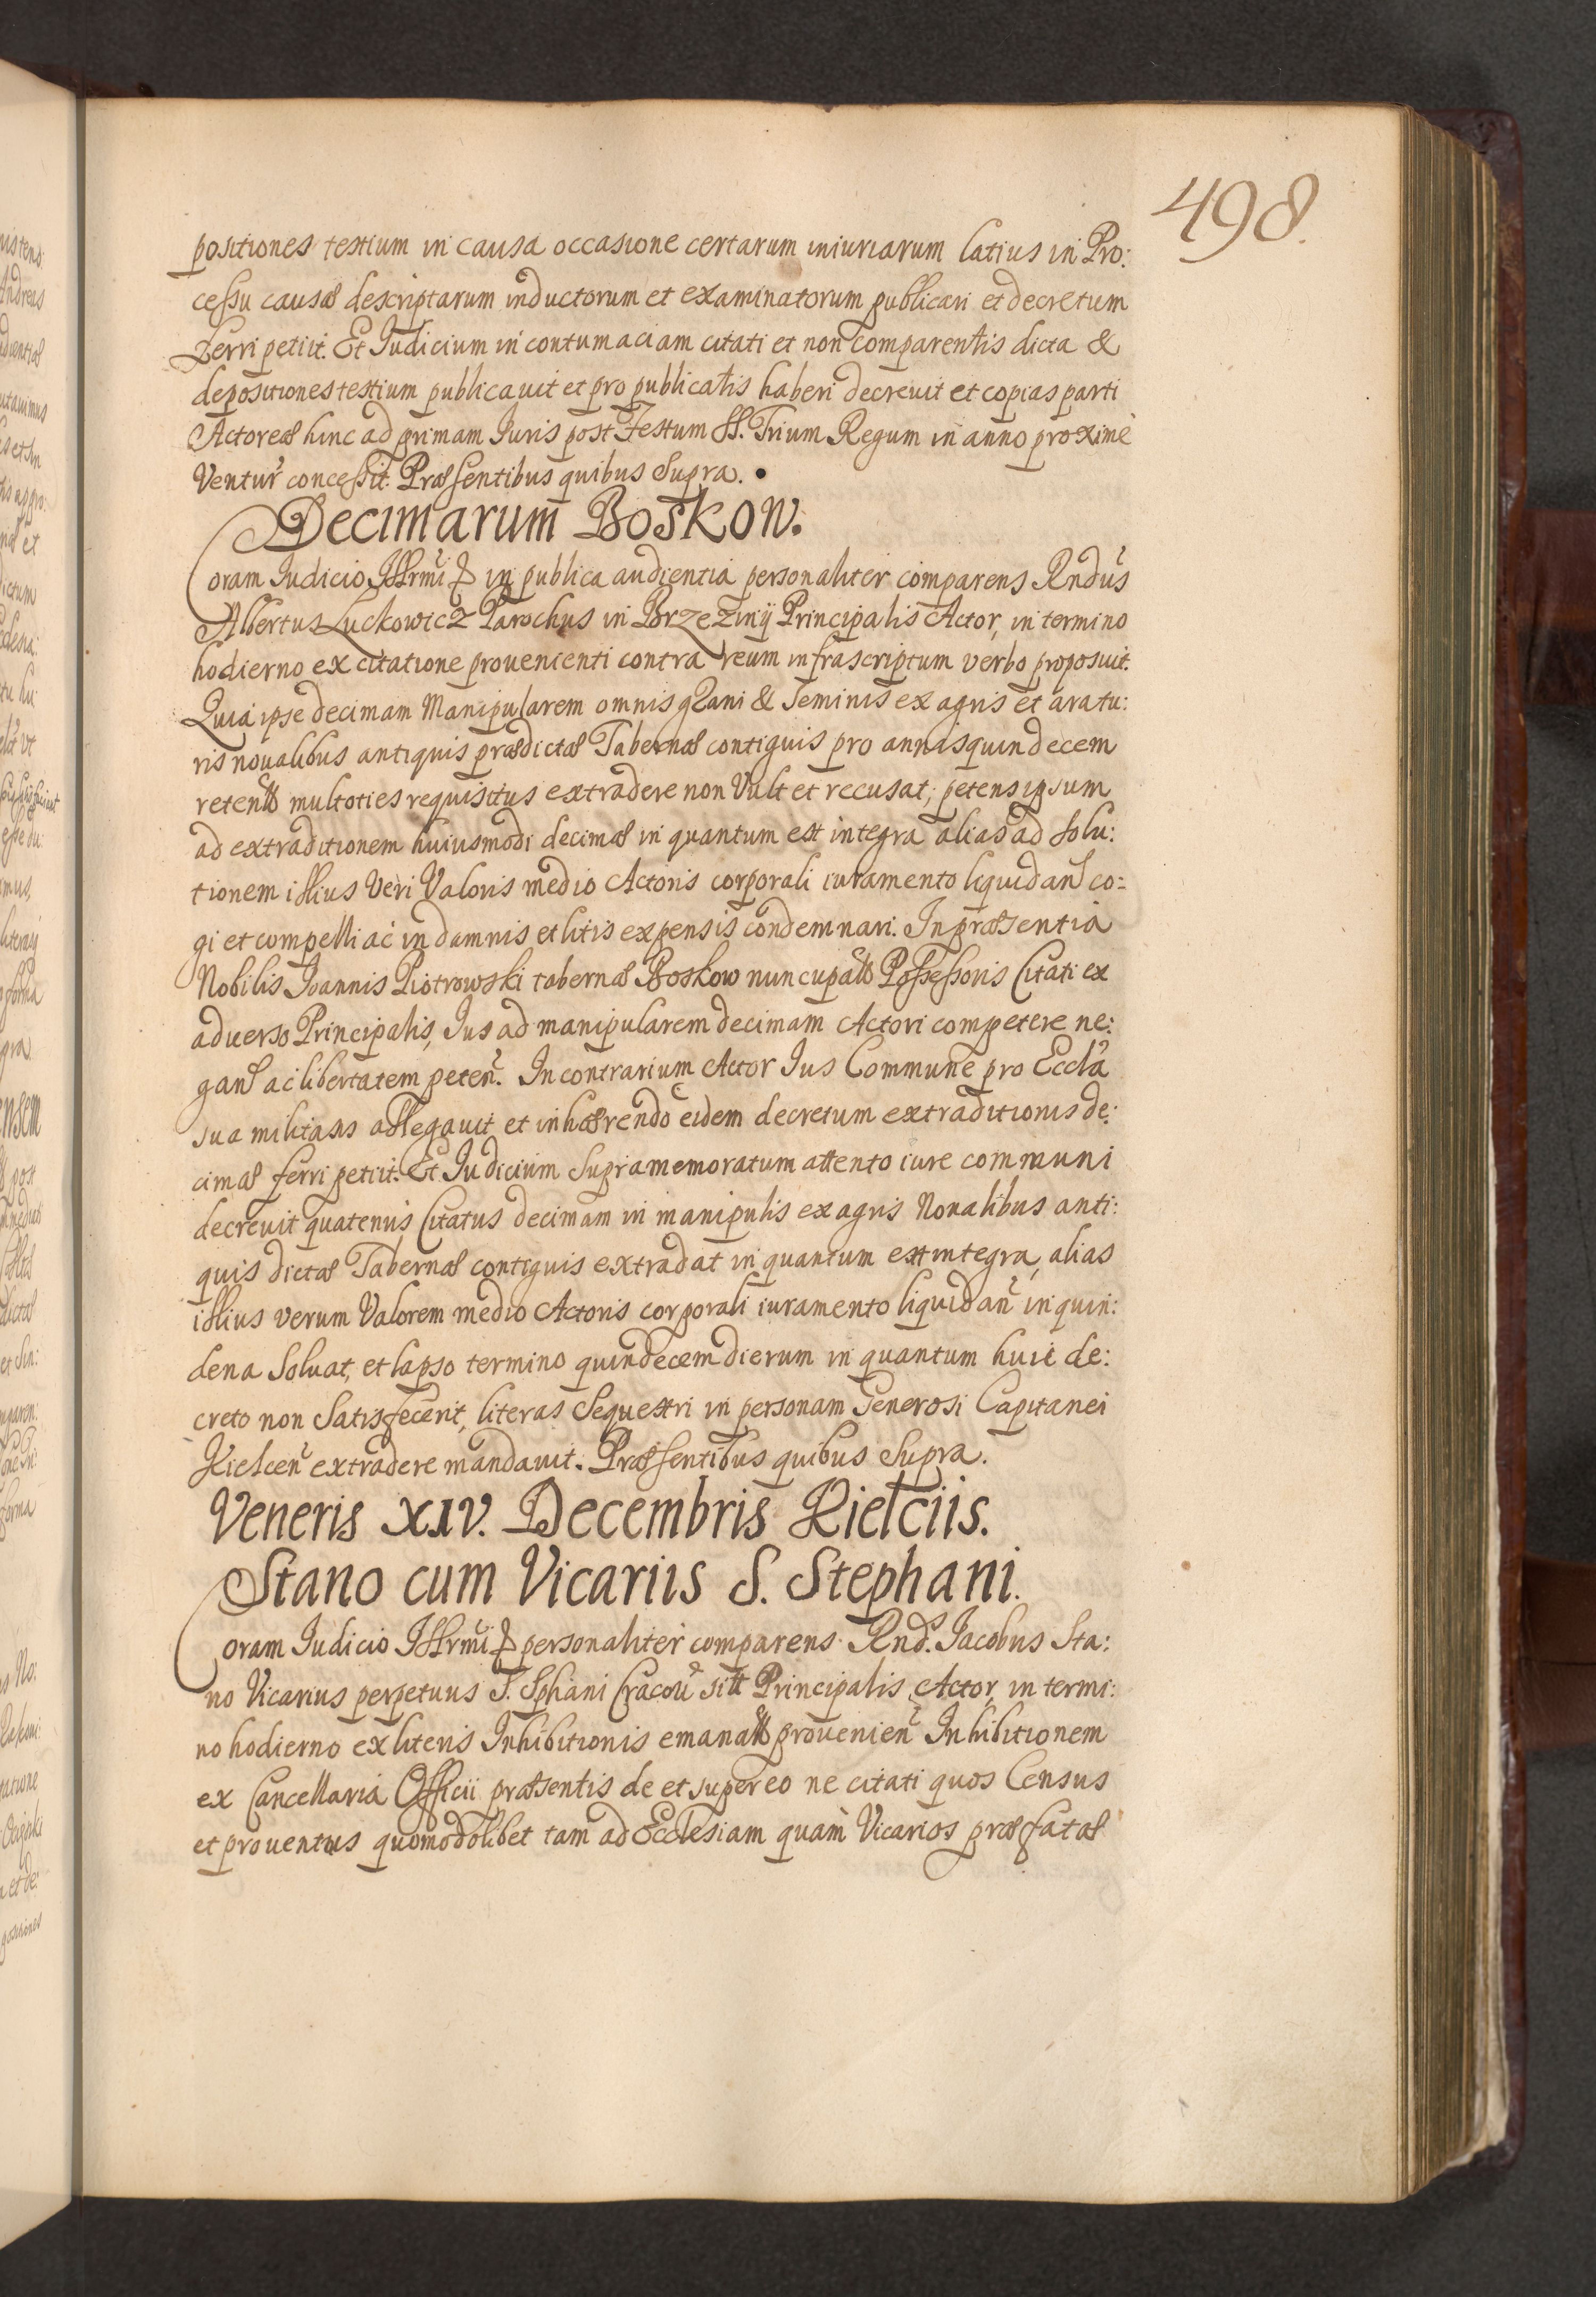 498.
positiones testium in causa occasione certarum iniuriarum latius in Pro:
cessu causæ descriptarum inductorum et examinatorum publicari et decretum
ferri petiit. Et Iudicium in contumaciam citati et non comparentis dicta &
depositiones testium publicauit et pro publicatis haberi decreuit et copias parti
Actoreæ hinc ad primam Iuris post Festum SS. Trium Regum in anno proximè
Ventur̃ concessit. Præsentibus quibus supra.
Decimarum Boskow.
Coram Iudicio Illrmi & in publica audientia personaliter comparens Rndus
Albertus Luckowicz Parochus in Brzezinÿ Principalis Actor, in termino
hodierno ex citatione prouenienti contra reum infrascriptum verbo proposuit.
Quia ipse decimam Manipularem omnis grani & seminis ex agris et aratu:
ris noualibus antiquis prædictæ Tabernæ contiguis pro annis quindecem
retentas multoties requisitus extradere non Vult et recusat; petens ipsum
ad extraditionem huiusmodi decimæ in quantum est integra alias ad solu:
tionem illius Veri Valoris medio Actoris corporali iuramento liquidan̄ co=
gi et compelli ac in damnis et litis expensis condemnari. In præsentia
Nobilis Ioannis Piotrowski tabernæ Boskow nuncupatæ Possessoris Citati ex
aduerso Principalis, Ius ad manipularem decimam Actori competere ne:
gan̄ ac libertatem peten̄. In contrarium Actor Ius Commune pro Eccl̃a
sua militans allegauit et inhærendo eidem decretum extraditionis de:
cimæ ferri petiit. Et Iudicium supra memoratum attento iure communi
decreuit quatenus Citatus decimam in manipulis ex agris Noualibus anti:
quis dictæ Tabernæ contiguis extradat in quantum est integra, alias
illius verum Valorem medio Actoris corporali iuramento liquidan̄ in quin:
dena soluat, et lapso termino quindecem dierum in quantum huic de:
creto non satisfecerit, literas sequestri in personam Generosi Capitanei
Kielcen̄ extradere mandauit. Præsentibus quibus supra.
Veneris XIV. Decembris Kielciis.
Stano cum Vicariis S. Stephani.
Coram Iudicio Illrmi & personaliter comparens Rnd. Iacobus Sta:
no Vicarius perpetuus S. Sphani Cracou̅ Principalis Actor, in termi:
no hodierno ex literis Inhibitionis emanatis prouenien̄ Inhibitionem
ex Cancellaria Officii præsentis de et super eo ne citati quos Census
et prouentus quomodolibet tam ad Ecclesiam quam Vicarios præfatæ